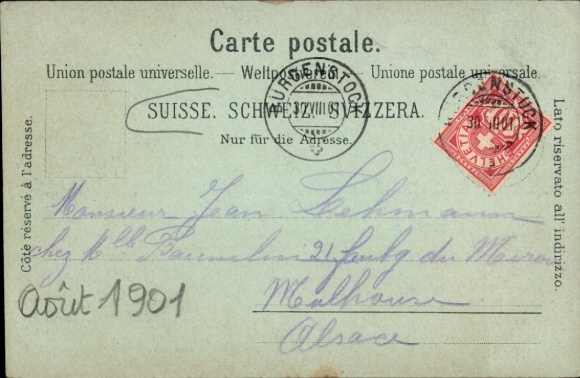 Carte postale.
Union postale universelle. — Weltpostverein. — Unione postale universale.
SUISSE. SCHWEIZ. SVIZZERA.
Nur für die Adresse.
Côte réservé à l'adresse.
Lato riservato all' indirizzo.
BÜRGENSTOCK
30.VIII.01
BÜRGENSTOCK
30 VIII 01
HELVETIA
Monsieur Jean Lehmann
chez Mlle 21 faubg du Miroir
Mulhouse
Alsace
Août 1901